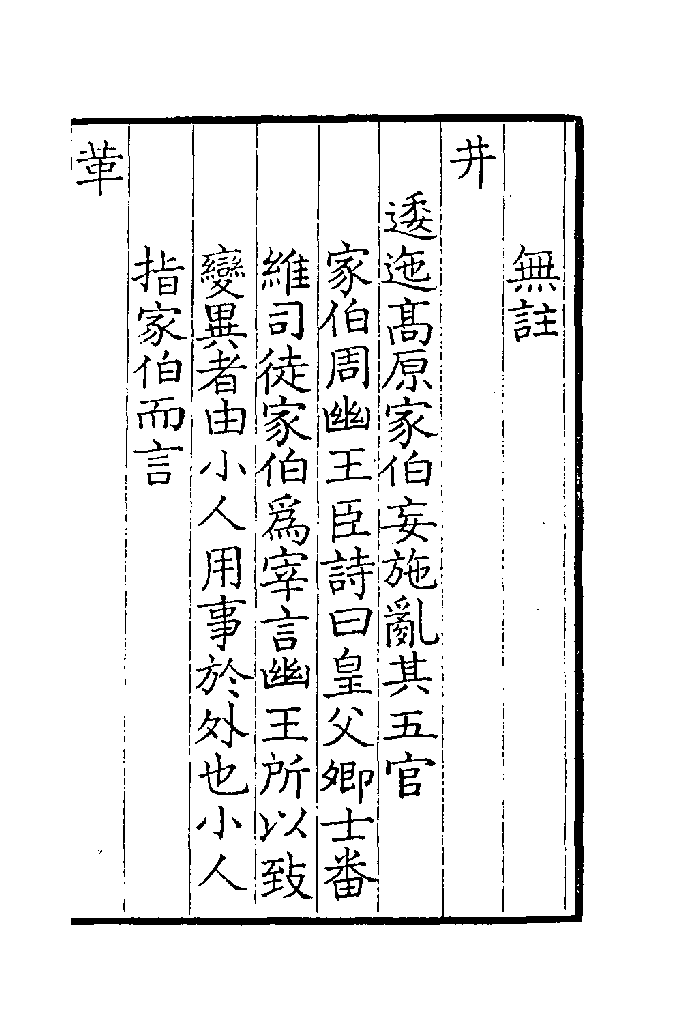 無註
井
逶迤髙原家伯妄施亂其五官
家伯周幽王臣詩曰皇父卿士番
維司徒家伯爲宰言幽王所以致
變異者由小人用事於外也小人
指家伯而言
革